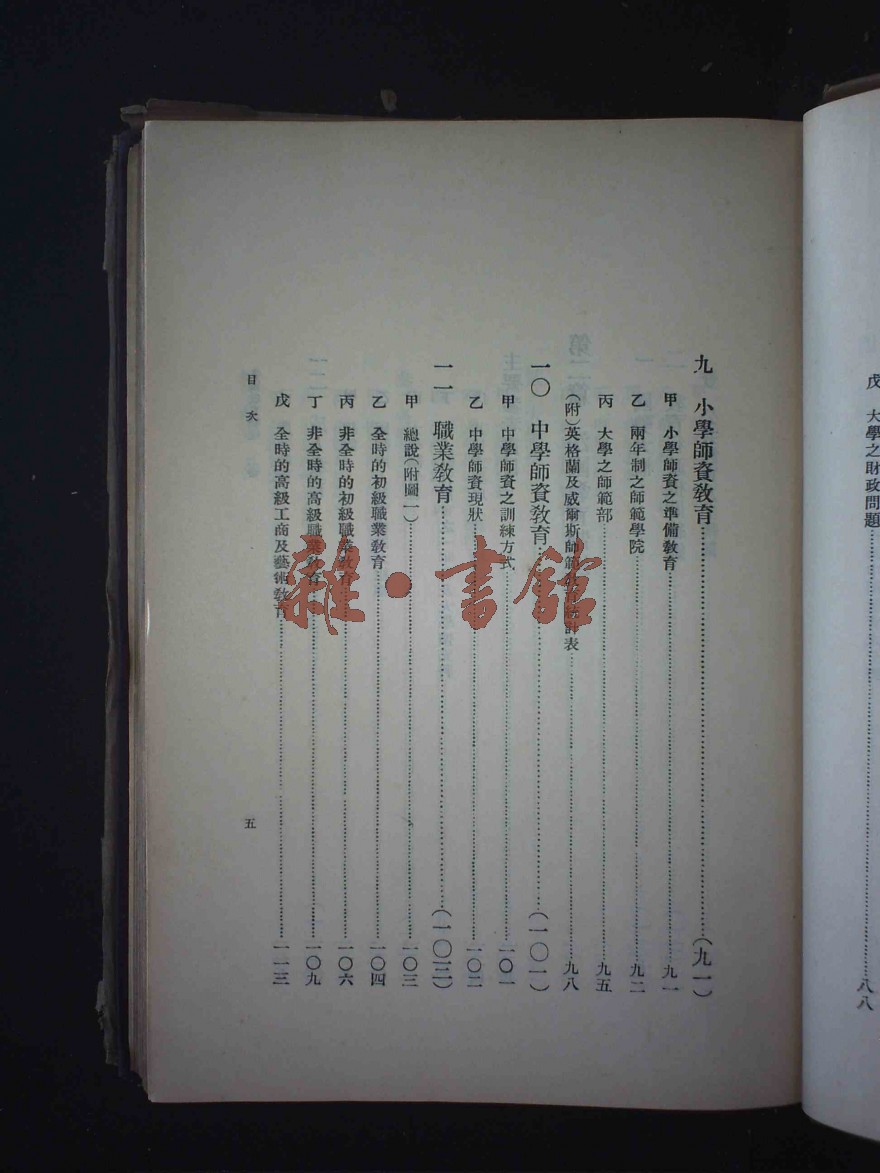 戊　大學之財政問題……八八
九　小學師資教育……(九一)
甲　小學師資之準備教育……九一
乙　兩年制之師範學院……九二
丙　大學之師範部……九五
(附)英格蘭及威爾斯師範教育統計表……九八
一〇　中學師資教育……(一〇一)
甲　中學師資之訓練方式……一〇一
乙　中學師資現狀……一〇二
一一　職業教育……(一〇三)
甲　總說(附圖一)……一〇三
乙　全時的初級職業教育……一〇四
丙　非全時的初級職業教育……一〇六
丁　非全時的高級職業教育……一〇九
戊　全時的高級工商及藝術教育……一一三
目次
五
雜·書館